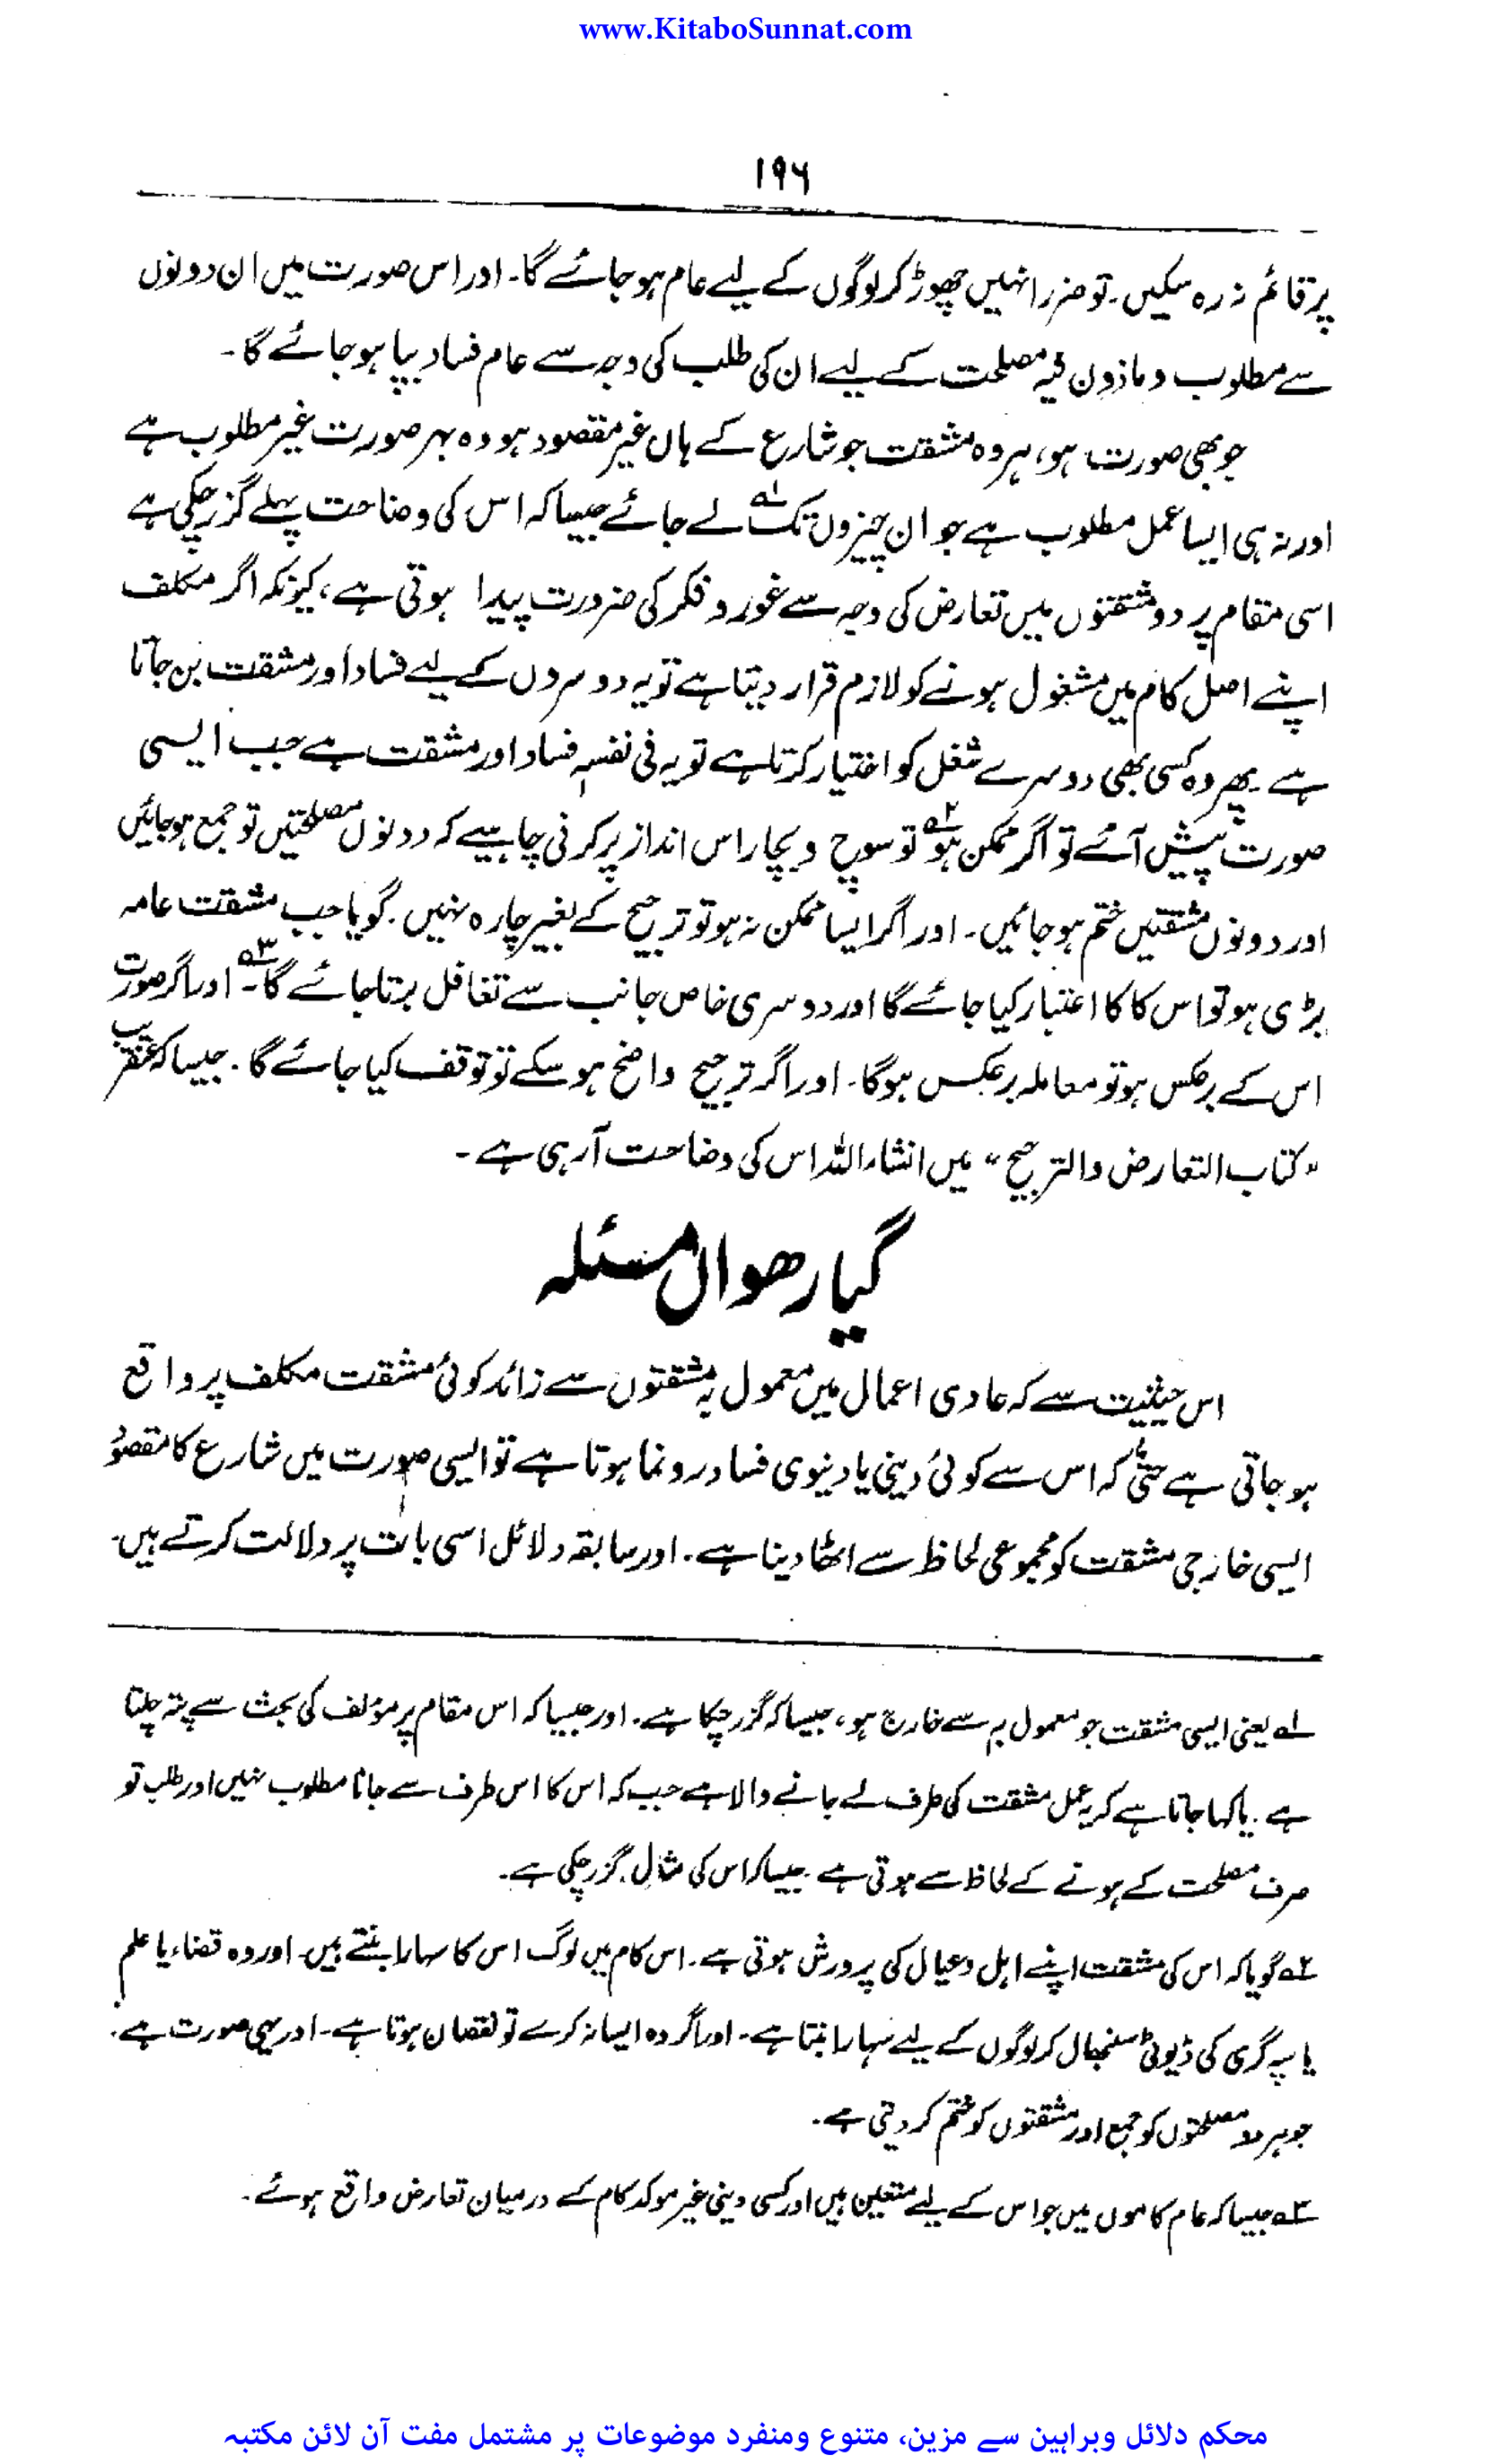 www.KitaboSunnat.com
۱۹۶
پر قائم نہ رہ سکیں۔ تو ضرر انہیں چھوڑ کر لوگوں کے لیے عام ہو جائے گا۔ اور اس صورت میں ان دونوں
سے مطلوب و ماذون فیہ مصلحت کے لیے ان کی طلب کی وجہ سے عام فساد بپا ہو جائے گا۔
جو بھی صورت ہو، ہر وہ مشقت جو شارع کے ہاں غیر مقصود ہو وہ بہر صورت غیر مطلوب ہے
اور نہ ہی ایسا عمل مطلوب ہے جو ان چیزوں تک۱؎ لے جائے جیسا کہ اس کی وضاحت پہلے گزر چکی ہے
اسی مقام پر دو مشقتوں میں تعارض کی وجہ سے غور و فکر کی ضرورت پیدا ہوتی ہے، کیونکہ اگر مکلف
اپنے اصل کام میں مشغول ہونے کو لازم قرار دیتا ہے تو یہ دوسروں کے لیے فساد اور مشقت بن جاتا
ہے۔ پھر وہ کسی بھی دوسرے شغل کو اختیار کرتا ہے تو یہ فی نفسہٖ فساد اور مشقت ہے جب ایسی
صورت پیش آئے تو اگر ممکن ہو۲؎ تو سوچ و بچار اس انداز پر کرنی چاہیے کہ دونوں مصلحتیں تو جمع ہو جائیں
اور دونوں مشقتیں ختم ہو جائیں۔ اور اگر ایسا ممکن نہ ہو تو ترجیح کے بغیر چارہ نہیں۔ گویا جب مشقت عامہ
بڑی ہو تو اس کا کا اعتبار کیا جائے گا اور دوسری خاص جانب سے تغافل برتا جائے گا۔۳؎ اور اگر صورت
اس کے برعکس ہو تو معاملہ برعکس ہوگا۔ اور اگر ترجیح واضح ہو سکے تو توقف کیا جائے گا۔ جیسا کہ عنقریب
"کتاب التعارض والترجیح" میں انشاء اللہ اس کی وضاحت آ رہی ہے۔
گیارھواں مسئلہ
اس حیثیت سے کہ عادی اعمال میں معمول بہ مشقتوں سے زائد کوئی مشقت مکلف پر واقع
ہو جاتی ہے حتیٰ کہ اس سے کوئی دینی یا دنیوی فساد رونما ہوتا ہے تو ایسی صورت میں شارع کا مقصود
ایسی خارجی مشقت کو مجموعی لحاظ سے اٹھا دینا ہے۔ اور سابقہ دلائل اسی بات پر دلالت کرتے ہیں۔
۱؎ یعنی ایسی مشقت جو معمول بہ سے خارج ہو، جیسا کہ گزر چکا ہے۔ اور جیسا کہ اس مقام پر مؤلف کی بحث سے پتہ چلتا
ہے۔ یا کہا جاتا ہے کہ یہ عمل مشقت کی طرف لے جانے والا ہے جب کہ اس کا اس طرف سے جانا مطلوب نہیں اور طلب تو
صرف مصلحت کے ہونے کے لحاظ سے ہوتی ہے جیسا کہ اس کی مثال گزر چکی ہے۔
۲؎ گویا کہ اس کی مشقت اپنے اہل و عیال کی پرورش ہوتی ہے۔ اس کام میں لوگ اس کا سہارا بنتے ہیں۔ اور وہ قضاء یا علم
یا سپہ گری کی ڈیوٹی سنبھال کر لوگوں کے لیے سہارا بنتا ہے۔ اور اگر وہ ایسا نہ کرے تو نقصان ہوتا ہے۔ اور یہی صورت ہے۔
جو ہر دو مصلحتوں کو جمع اور مشقتوں کو ختم کر دیتی ہے۔
۳؎ جیسا کہ عام کاموں میں جو اس کے لیے متعین ہیں اور کسی دینی غیر موکد کام کے درمیان تعارض واقع ہوئے۔
محکم دلائل وبراہین سے مزین، متنوع ومنفرد موضوعات پر مشتمل مفت آن لائن مکتبہ